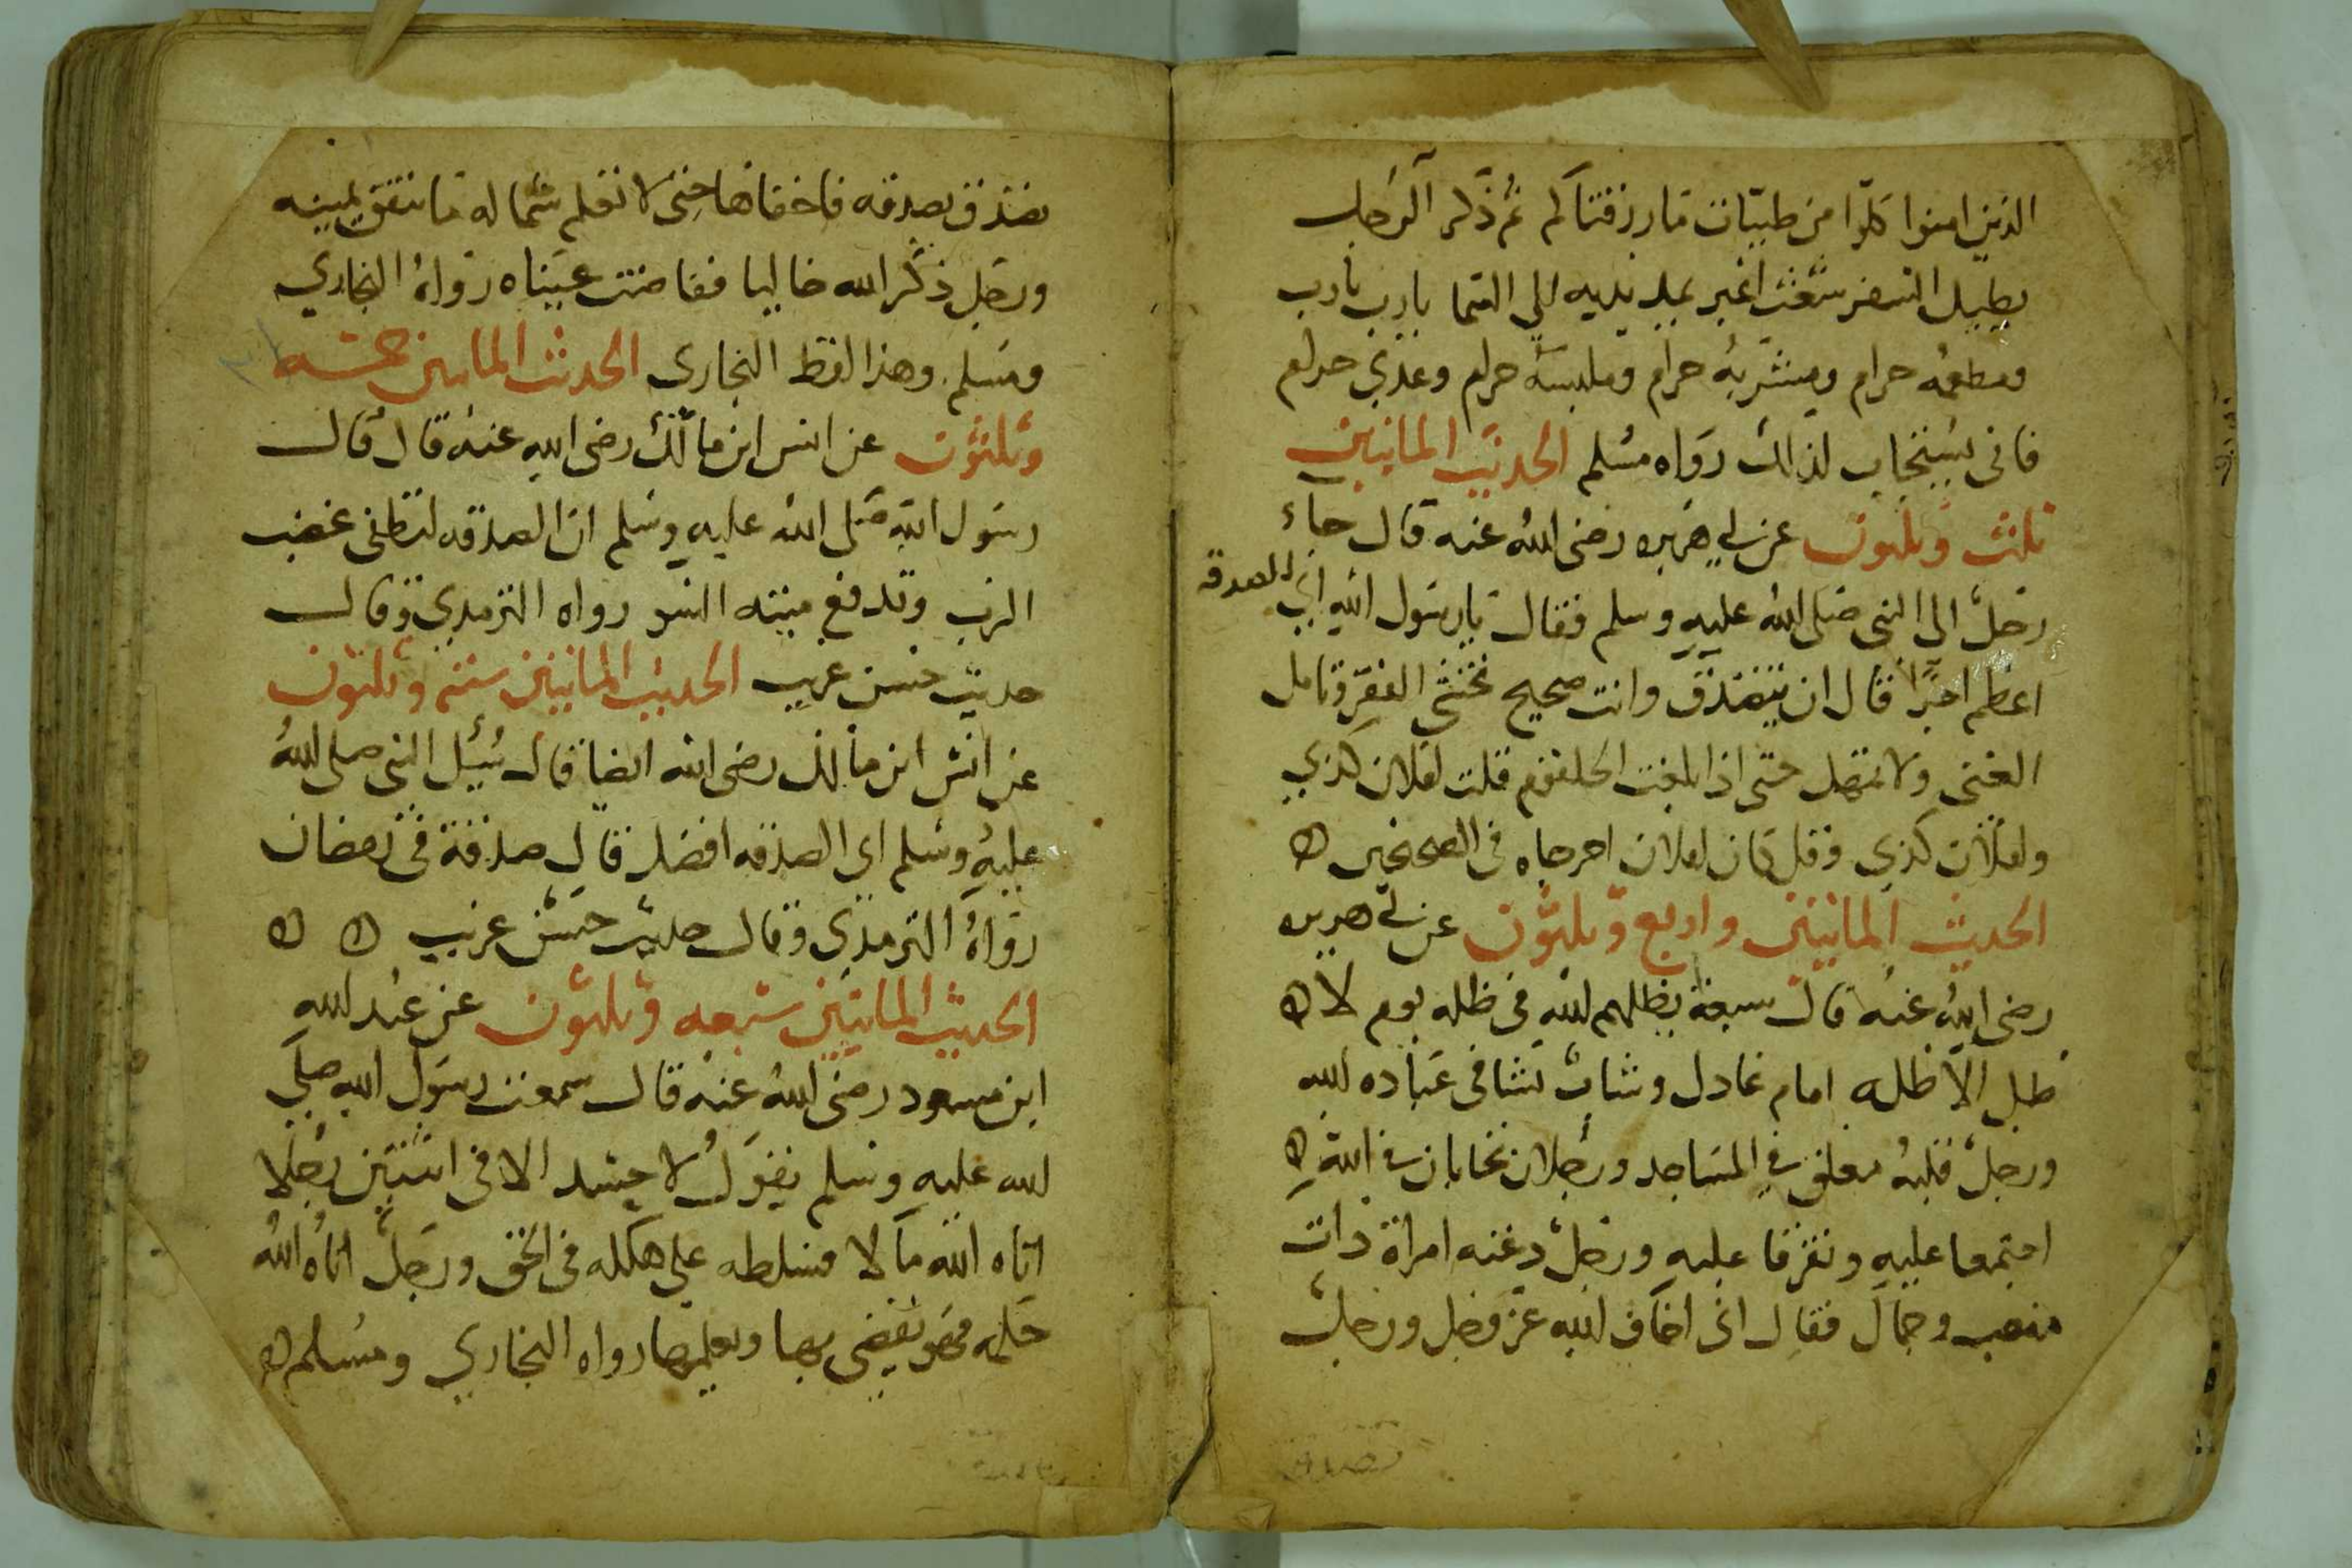 الذين امنوا كلوا من طيبات مارزقناكم ثم ذكر الرجل
يطيل السفر شعث اغبر يمد يديه الي السما يارب يارب
ومطعمه حرام ومشربه حرام وملبسه حرام وغذي حرام
فاني يستجاب لذلك رواه مسلم الحديث الماتين
ثلث وثلثون عن ابي هريره رضي الله عنه قال جاء
رجل الى النبي صلى الله عليه وسلم فقال يارسول الله اي الصدقه
اعظم اجرا قال ان تتصدق وانت صحيح تخشى الفقر وتامل
الغنى ولا تمهل حتى اذا بلغت الحلقوم قلت لفلان كذي
ولفلان كذي وقد كان لفلان اخرجاه في الصحيحين ه
الحديث الماتين واربع وثلثون عن ابي هريره
رضي الله عنه قال سبعة يظلهم الله في ظله يوم لا ه
ظل الا ظله امام عادل وشاب نشا في عباده الله
ورجل قلبه معلق في المساجد ورجلان تحابا في الله ه
اجتمعا عليه وتفرقا عليه ورجل دعته امراة ذات
منصب وجمال فقال اني اخاف الله عز وجل ورجل
تصدق بصدقه فاخفاها حتى لا تعلم شماله ما تنفق يمينه
ورجل ذكر الله خاليا ففاضت عيناه رواه البخاري
ومسلم وهذا لفظ البخاري الحديث الماتين خمسه
وثلثون عن انس ابن مالك رضي الله عنه قال قال
رسول الله صلى الله عليه وسلم ان الصدقه لتطفى غضب
الرب وتدفع ميته السو رواه الترمدي وقال
حديث حسن غريب الحديث الماتين سته وثلثون
عن انس ابن مالك رضي الله ايضا قال سيل النبي صلى الله
عليه وسلم اي الصدقه افضل قال صدقة في رمضان
رواه الترمدي وقال حديث حسن غريب ه ه
الحديث الماتين سبعه وثلثون عن عبد الله
ابن مسعود رضي الله عنه قال سمعت رسول الله صلى
الله عليه وسلم يقول لا حسد الا في اثنتين رجلا
اتاه الله مالا فسلطه على هلكله في الحق ورجل اتاه الله
حكمه فهو يقضي بها ويعلمها رواه البخاري ومسلم ه